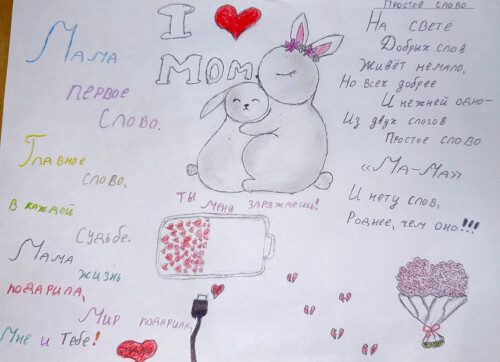 I ❤ MOM
Мама
первое
слово.
Главное
слово,
в каждой
Судьбе.
Мама
жизнь
подарила,
Мир подарила,
Мне и Тебе!
Ты меня заряжаешь!
Простое слово
На свете
Добрых слов
Живёт немало,
Но всех добрее
И нежней одно-
Из двух слогов
Простое слово
«Ма-ма»
И нету слов,
Роднее, чем оно!!!